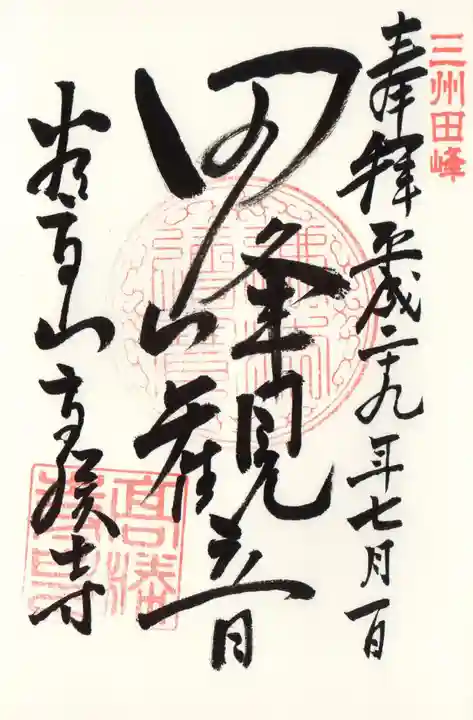 三州田峰
奉拝 平成二十九年七月一日
田峰山観音
谷高山高勝寺
高勝